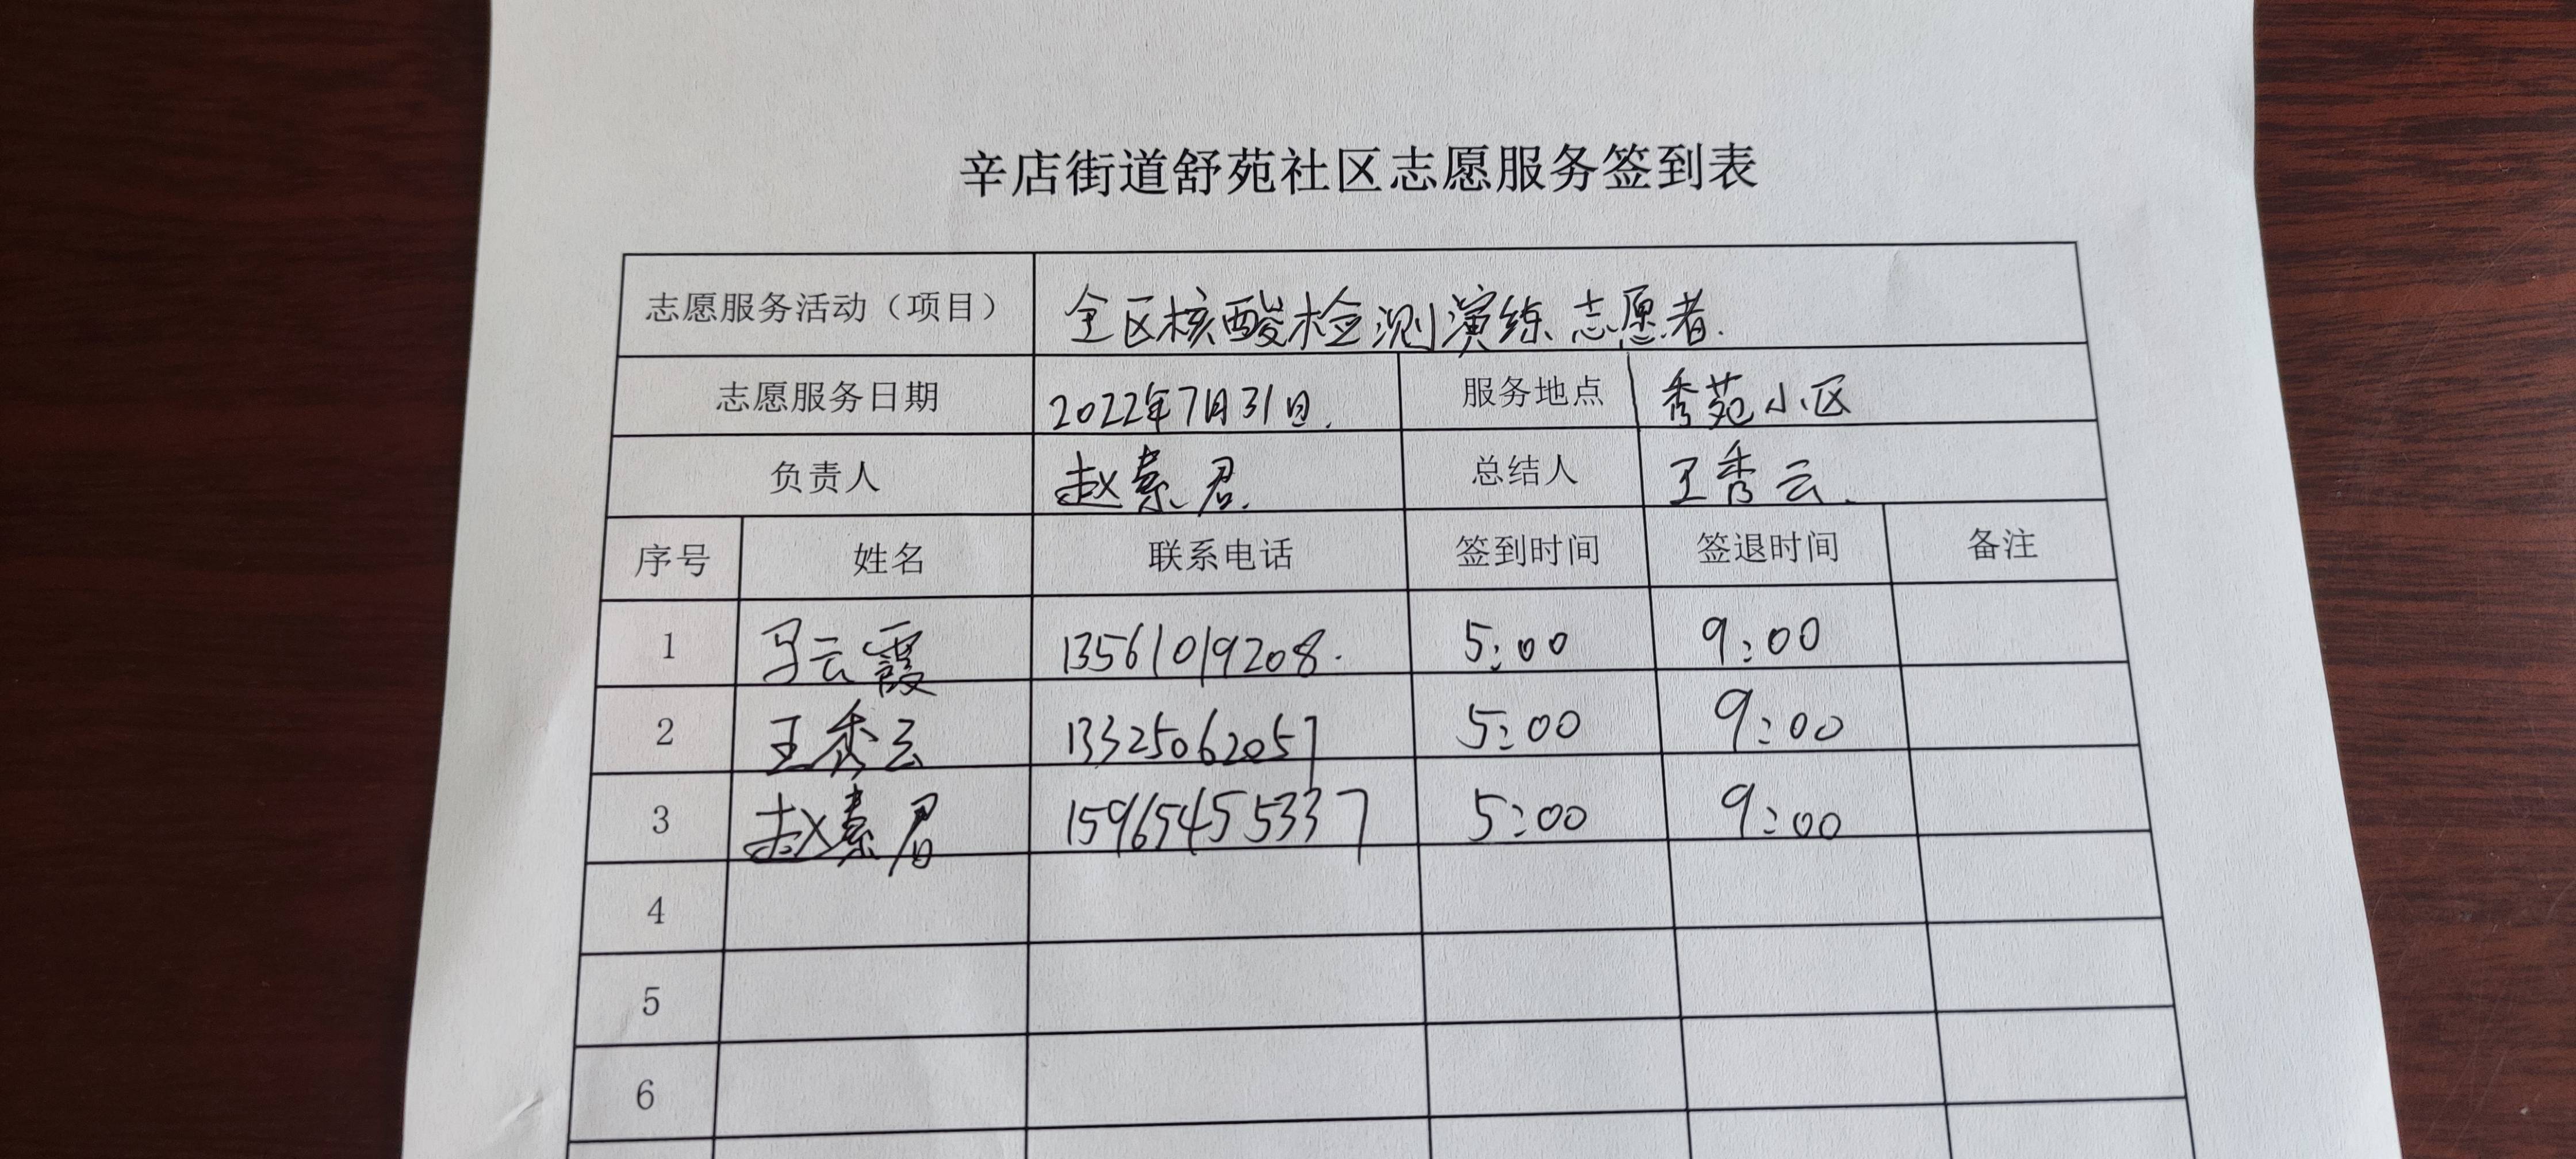 辛店街道舒苑社区志愿服务签到表
志愿服务活动（项目） 全区核酸检测演练志愿者.
志愿服务日期 2022年7月31日. 服务地点 秀苑小区
负责人 赵素君. 总结人 王秀云.
序号 姓名 联系电话 签到时间 签退时间 备注
1 马云霞 13561019208. 5:00 9:00
2 王秀云 13325062057 5:00 9:00
3 赵素君 15965455337 5:00 9:00
4
5
6